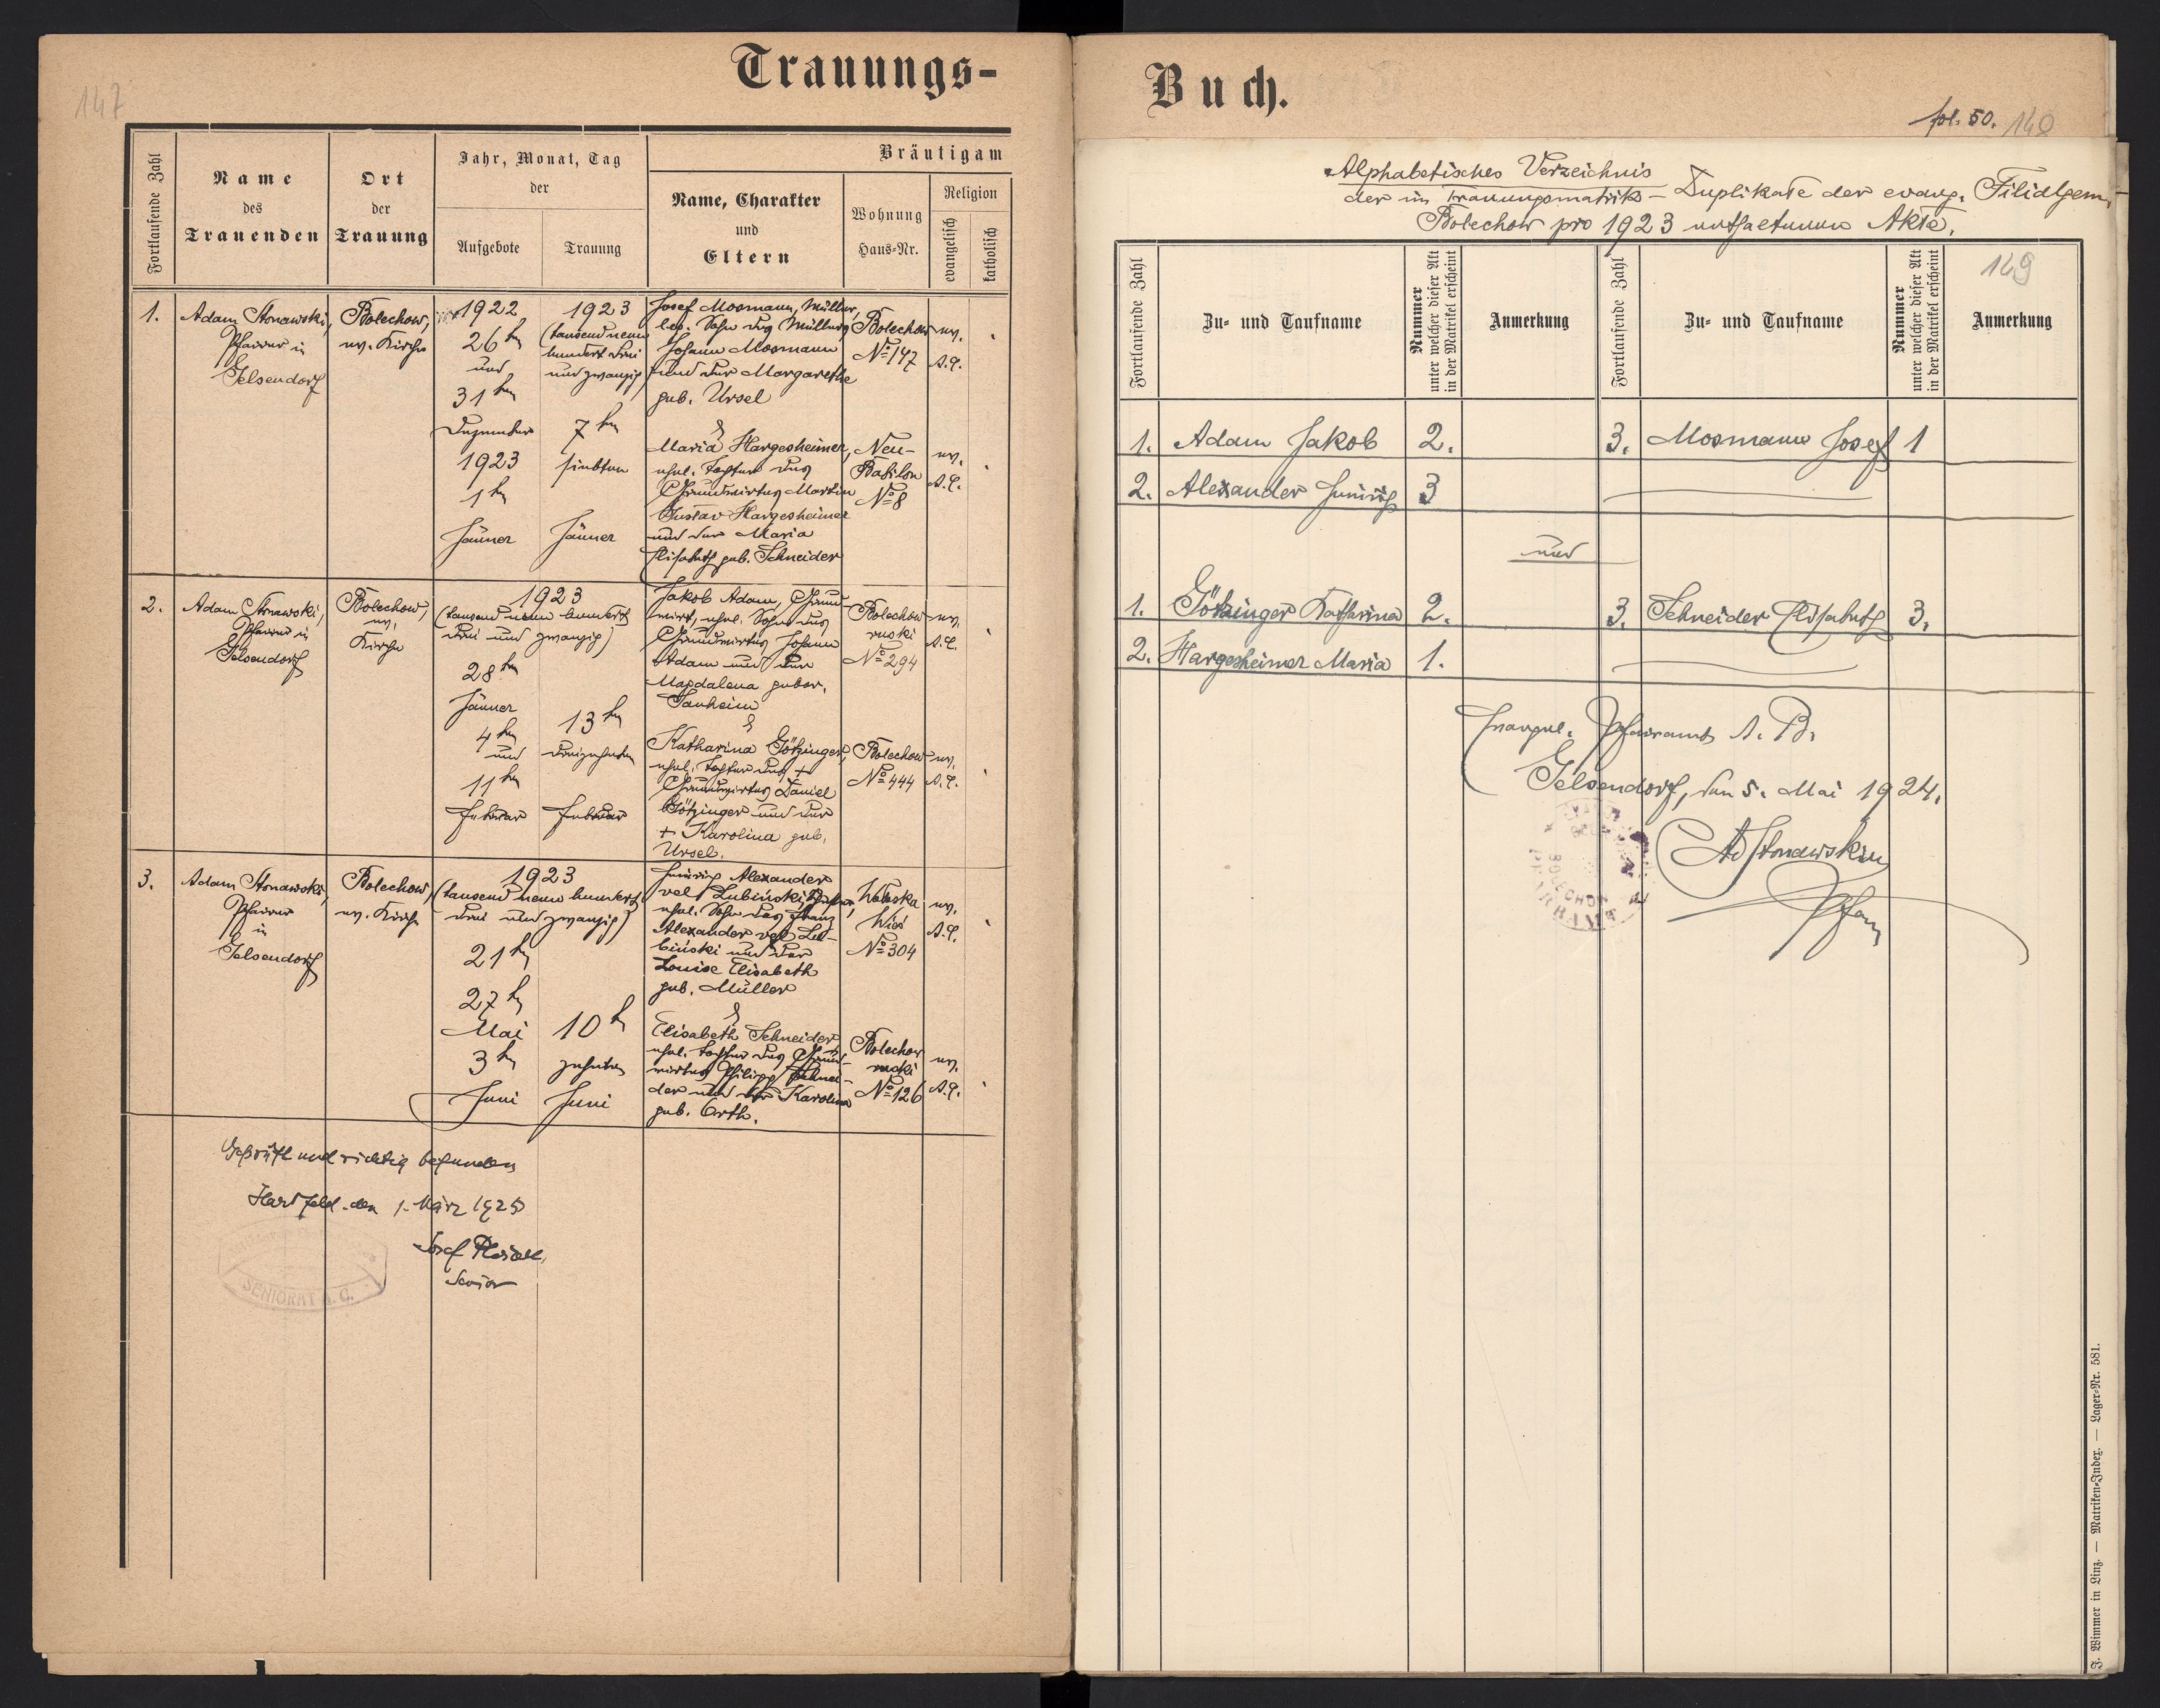 147
Trauungs-
Fortlaufende Zahl
Name
des
Trauenden
Ort
der
Trauung
Jahr, Monat, Tag
der
Aufgebote
Trauung
Bräutigam
Name, Charakter
und
Eltern
Wohnung
Haus-Nr.
Religion
evangelisch
katholisch
1.
Adam Stonawski,
Pfarrer in
Gelsendorf
Bolechow,
ev. Kirche
1922
26ten
und
31ten
Dezember
1923
1ten
Jänner
1923
(tausend neun
hundert drei
und zwanzig)
7ten
siebten
Jänner
Josef Mosmann, Müller,
led. Sohn des Müllers
Johann Mosmann
und der Margarethe
geb. Ursel
&
Maria Hargesheimer,
ehel. Tochter des
Grundwirtes Martin
Gustav Hargesheimer
und der Maria
Elisabeth geb. Schneider
Bolechow
No 147
Neu-
Babilon
No 8
ev.
A.C.
ev.
A.C.
2.
Adam Stonawski,
Pfarrer in
Gelsendorf
Bolechow,
ev.
Kirche
1923
(tausend neun hundert
drei und zwanzig)
28ten
Jänner
4ten
und
11ten
Februar
13ten
dreizehnten
Februar
Jakob Adam, Grund-
wirt, ehel. Sohn des
Grundwirtes Johann
Adam und der
Magdalena gebor.
Manheim
&
Katharina Götzinger,
ehel. Tochter des +
Grundwirtes Daniel
Götzinger und der
+ Karolina geb.
Ursel.
Bolechow
ruski
No 294
Bolechow
No 444
ev.
A.C.
ev.
A.C.
3.
Adam Stonawski,
Pfarrer
in
Gelsendorf
Bolechow,
ev. Kirche
1923
(tausend neun hundert
drei und zwanzig)
21ten
27ten
Mai
3ten
Juni
10ten
zehnten
Juni
Alexander
vel Lubiński,
ehel. Sohn des Franz
Alexander vel Lu-
biński und der
Louise Elisabeth
geb. Müller
&
Elisabeth Schneider
ehel. Tochter des Grund-
wirtes Philipp Schnei-
der und der Karolina
geb. Orth.
Wołoska
Wieś
No 304
Bolechow
ruski
No 126
ev.
A.C.
ev.
A.C.
Geprüft und richtig befunden
Hartfeld, den 1. März 1925
Josef
Senior
SENIORAT A. C.
Buch.
fol. 50. 148
Alphabetisches Verzeichnis
der im Trauungsmatrik-Duplikate der evang. Filialgem.
Bolechow pro 1923 enthaltenen Akte.
Fortlaufende Zahl
Zu- und Taufname
Nummer
unter welcher dieser Akt
in der Matrikel erscheint
Anmerkung
Fortlaufende Zahl
Zu- und Taufname
Nummer
unter welcher dieser Akt
in der Matrikel erscheint
149
Anmerkung
1. Adam Jakob 2. 3. Mosmann Josef 1
2. Alexander 3
und
1. Götzinger Katharina 2. 3. Schneider Elisabeth 3.
2. Hargesheimer Maria 1.
Evangel. Pfarramt A. B.
Gelsendorf, den 5. Mai 1924.
Stonawski
Pfarr
BOLECHÓW
F. Wimmer in Linz. — Matriken-Index. — Lager-Nr. 581.